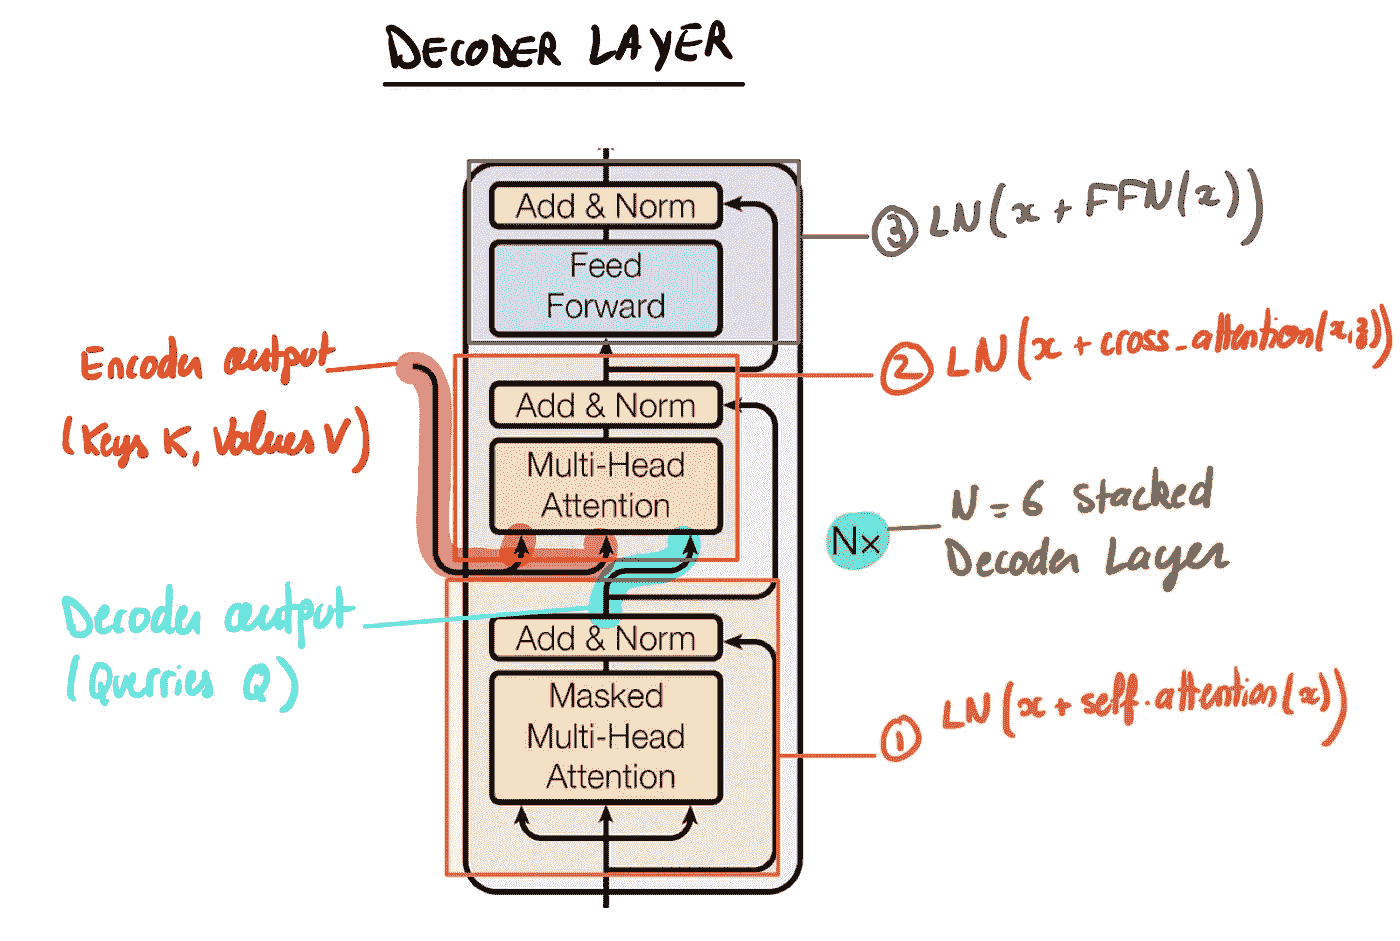 DECODER LAYER
Add & Norm
Feed
Forward
③ LN(x + FFN(x))
Encoder output
(Keys K, Values V)
Add & Norm
Multi-Head
Attention
② LN(x + cross_attention(x,z))
Nx
N = 6 Stacked
Decoder Layer
Decoder output
(Querries Q)
Add & Norm
Masked
Multi-Head
Attention
① LN(x + self.attention(x))